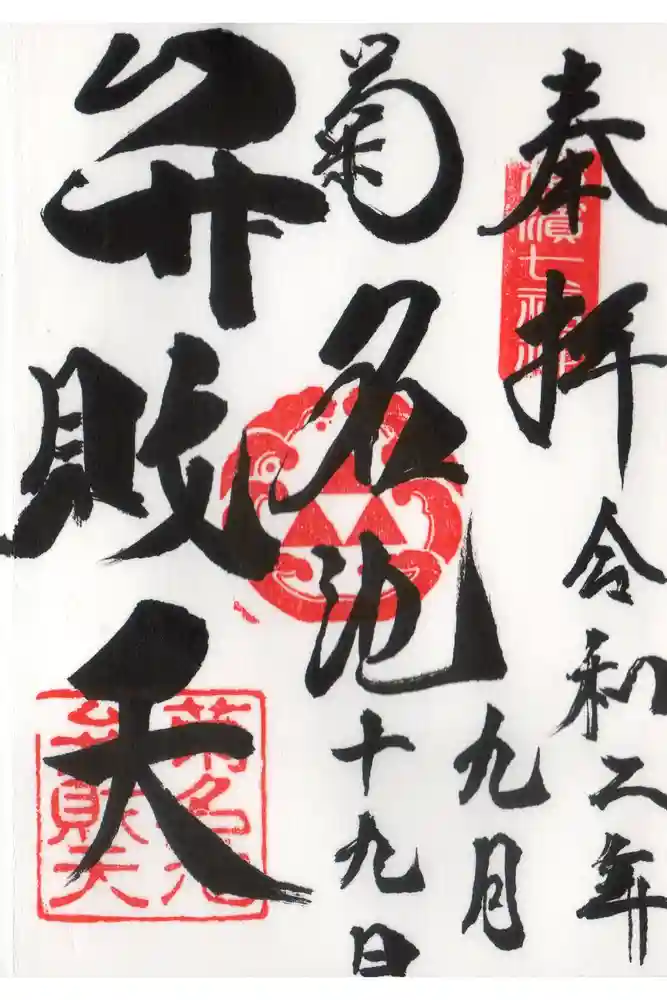 奉拝
令和二年
九月
十九日
菊名池
弁財天
濱七福神
菊名池
弁財天